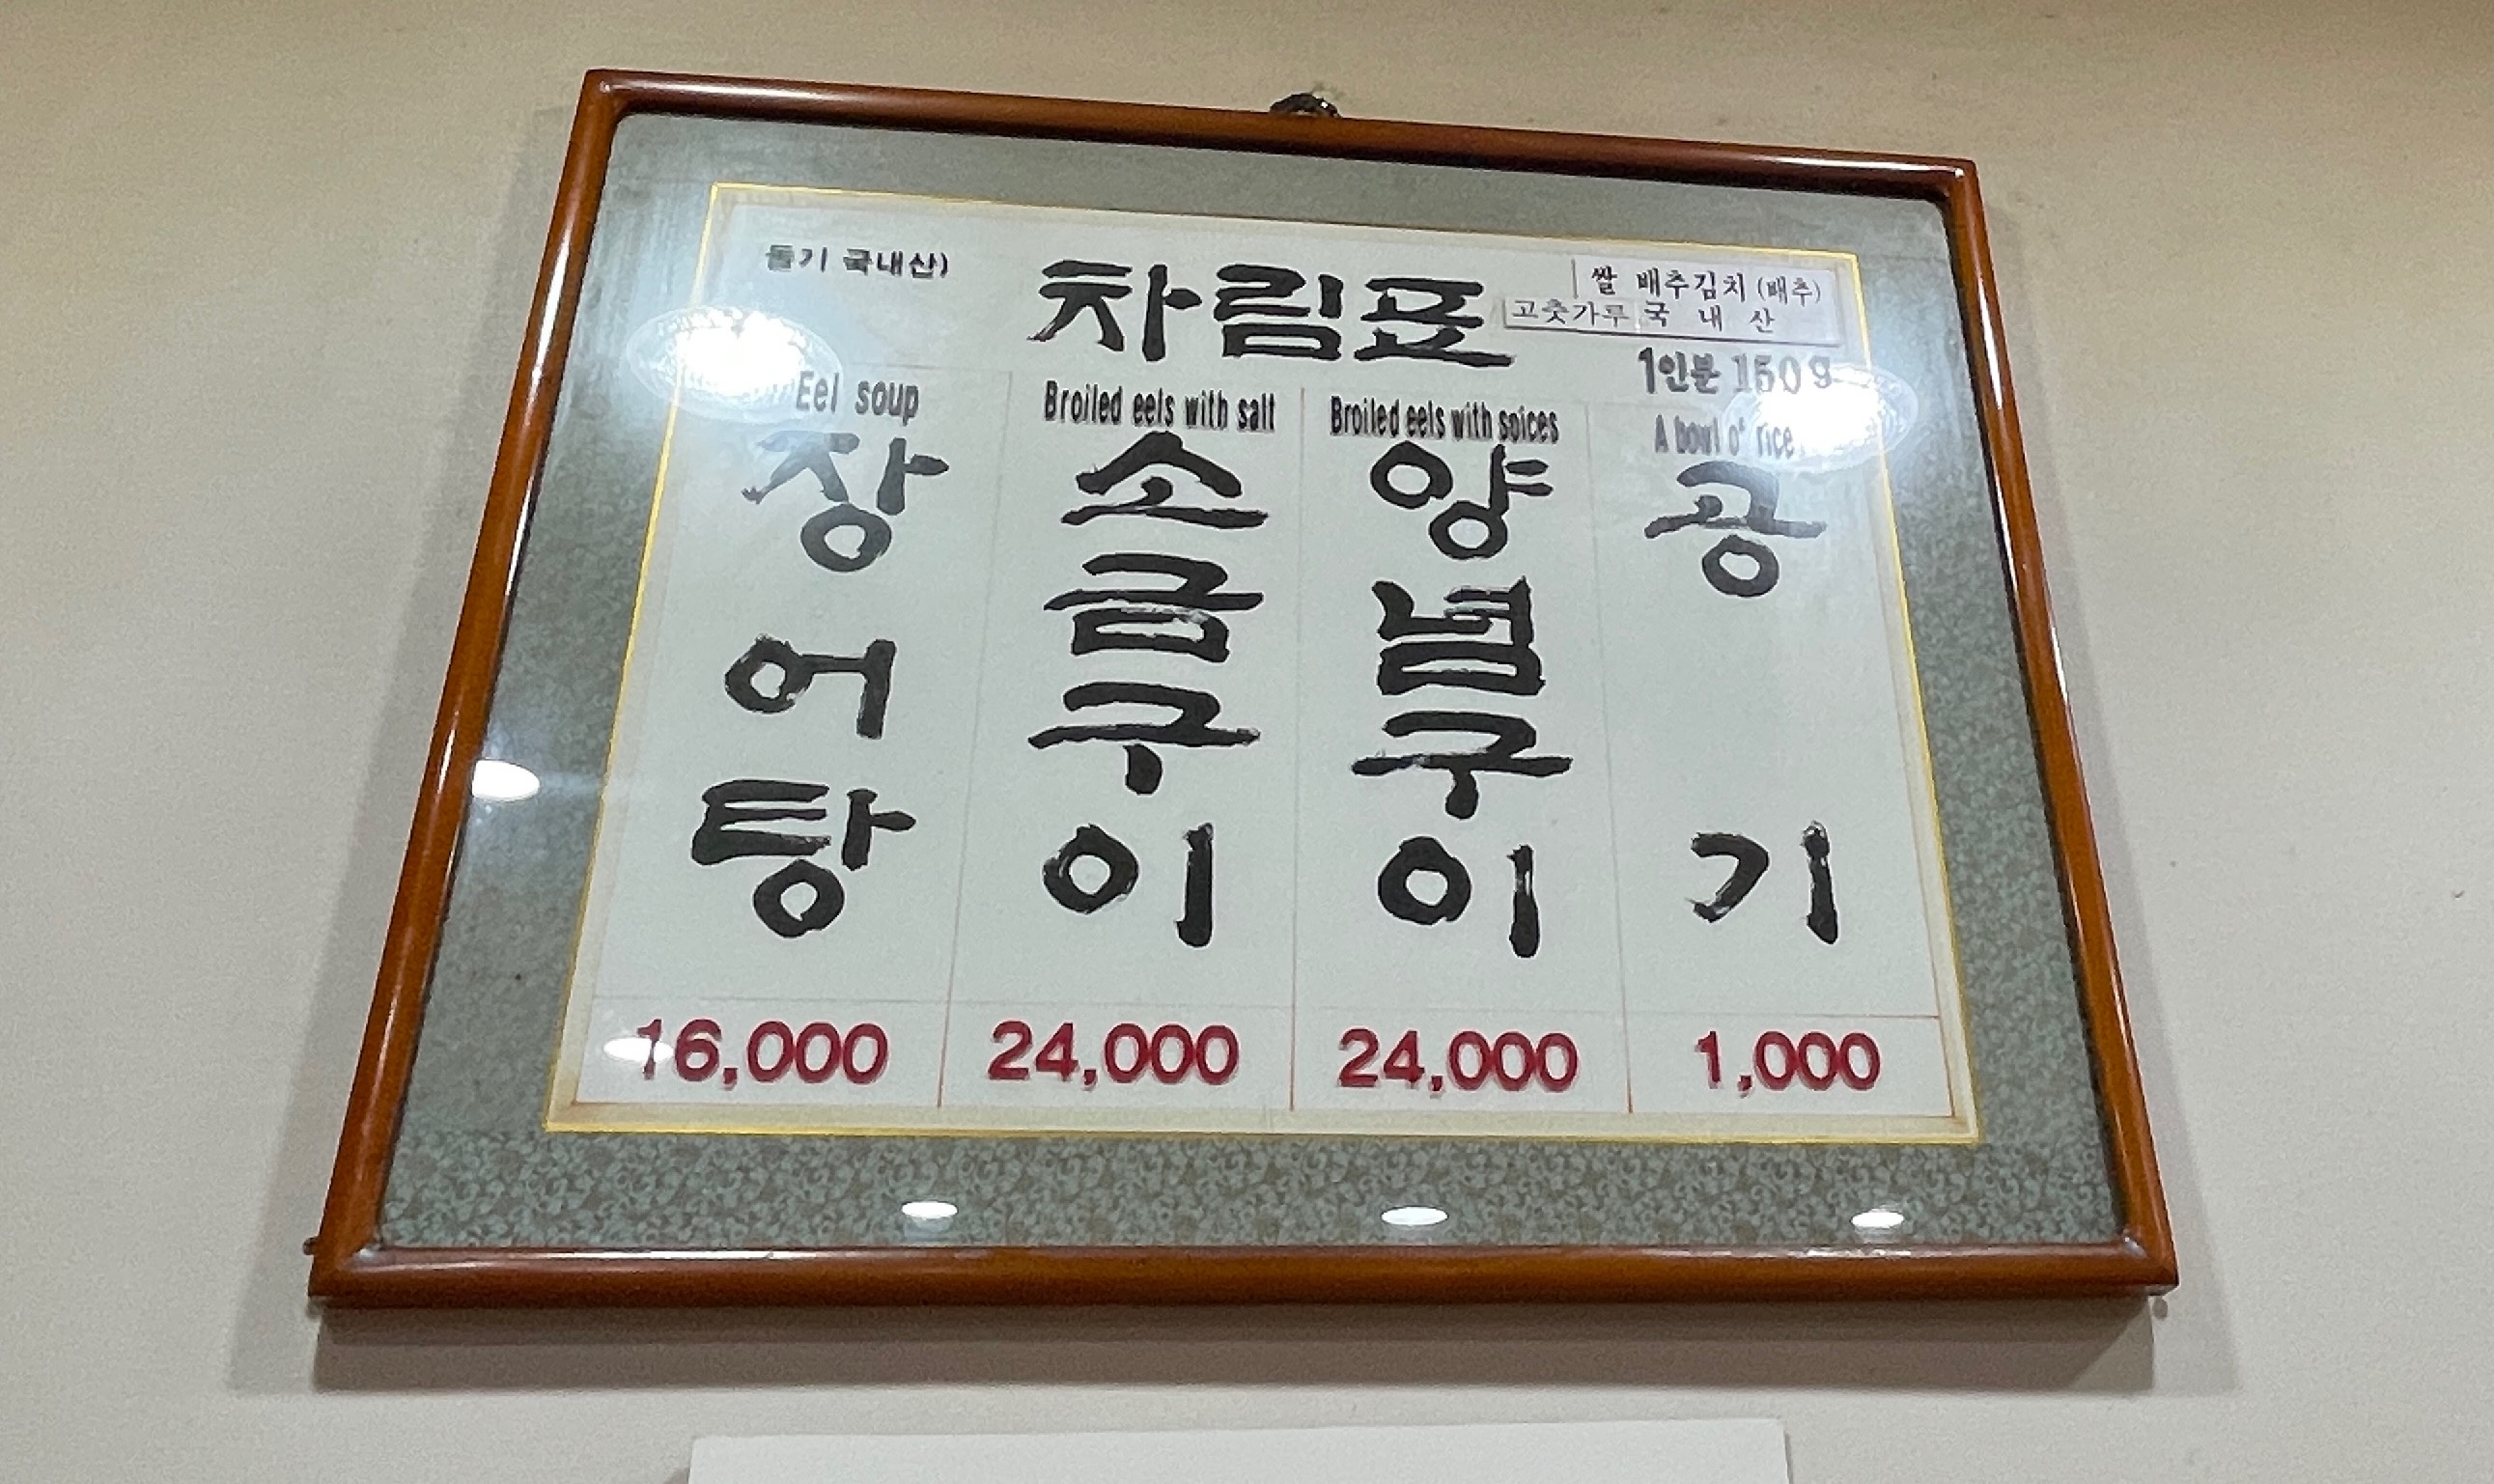 들기 국내산)
차림표
쌀 배추김치 (배추)
고춧가루 국 내 산
1인분 150g
Eel soup
장어탕
16,000
Broiled eels with salt
소금구이
24,000
Broiled eels with spices
양념구이
24,000
A bowl of rice
공기
1,000